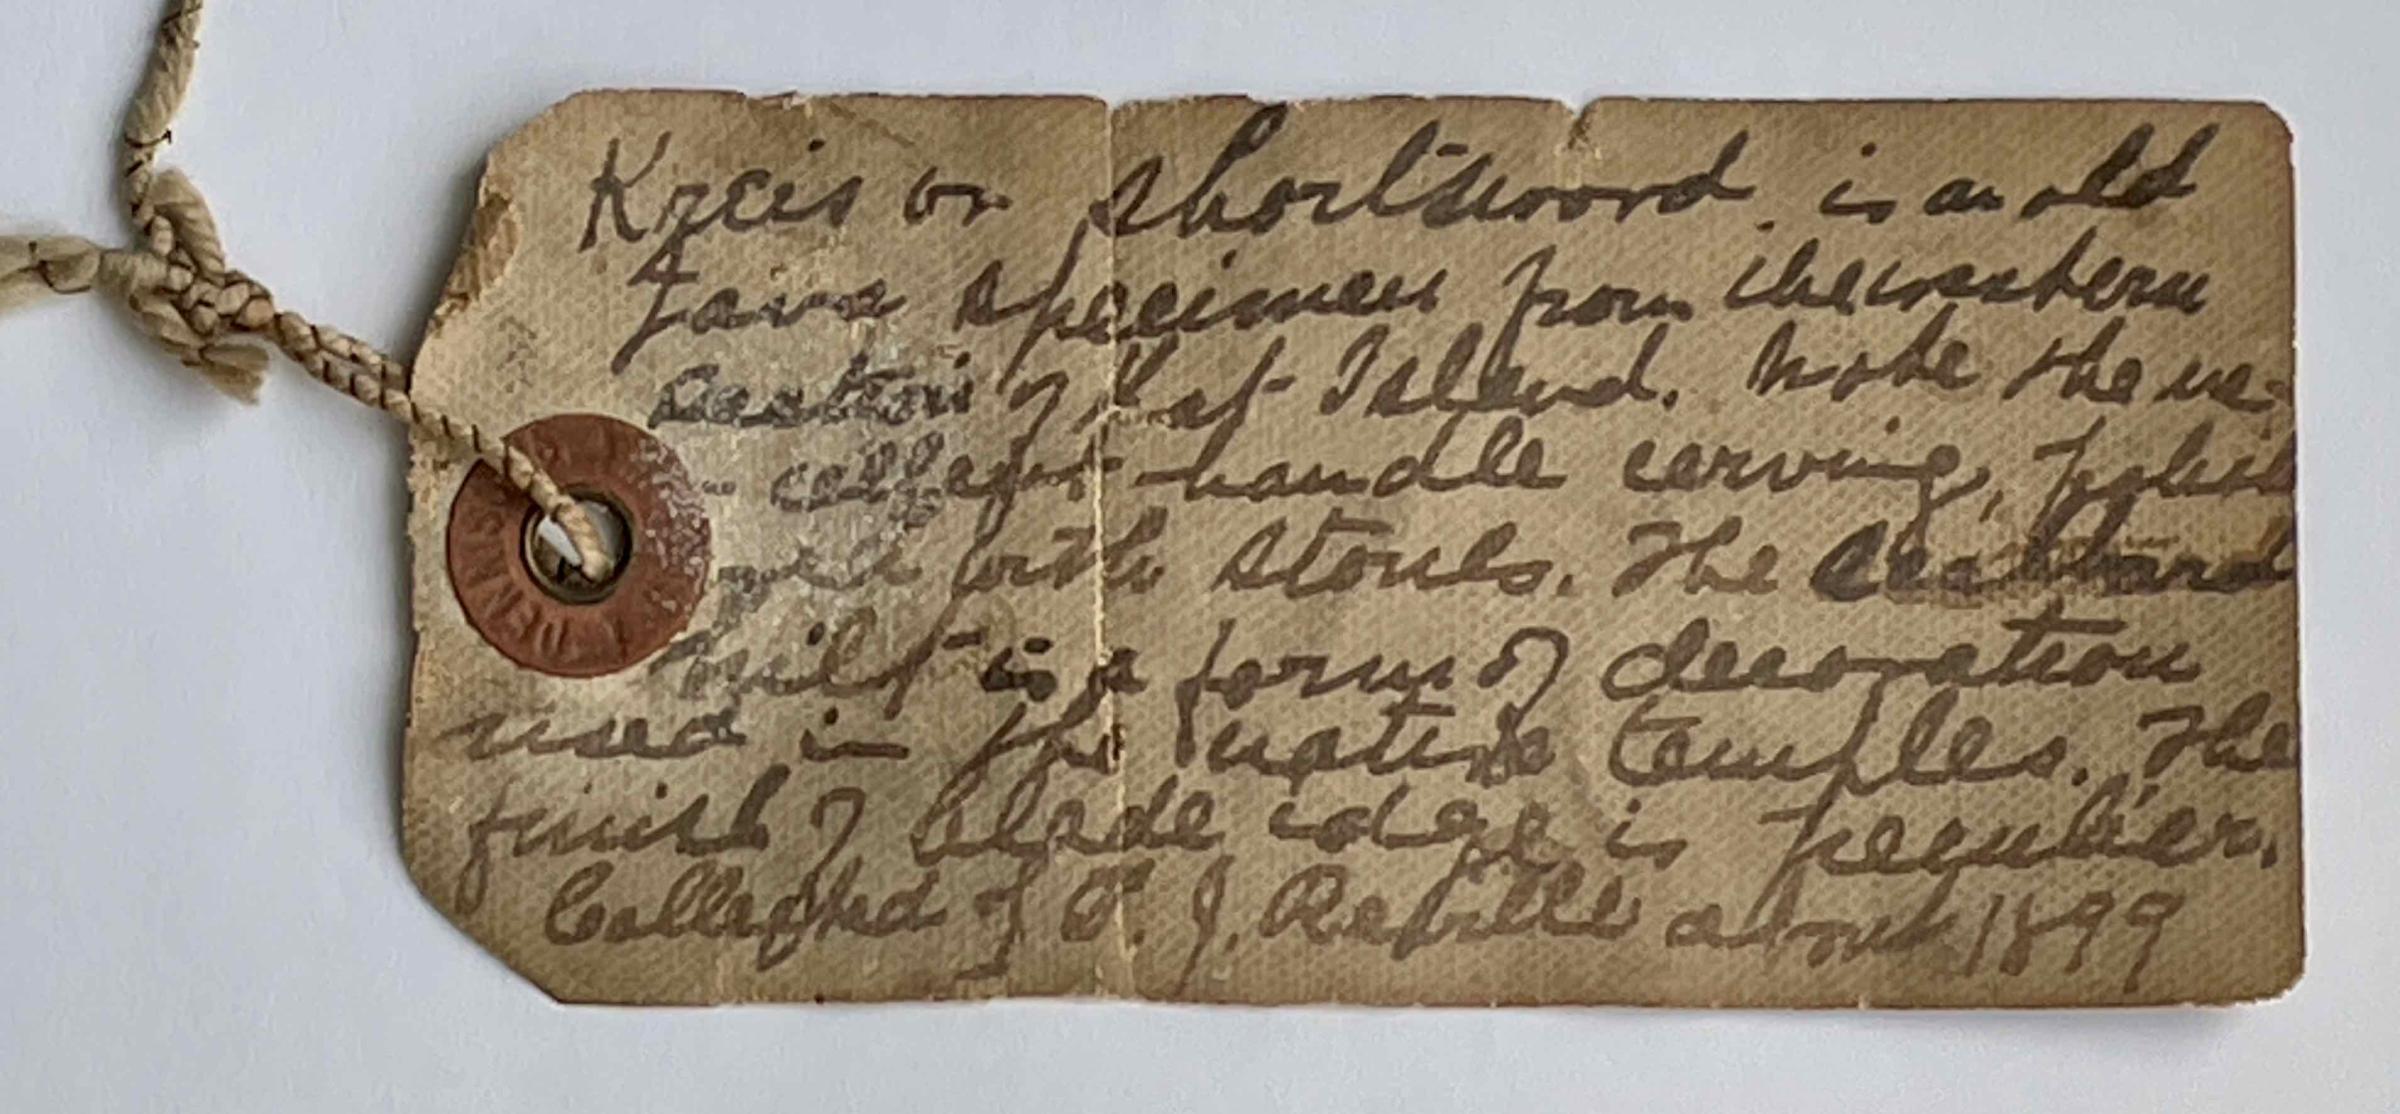 Kreis or shortsword is an old
Java specimen from the western
section of that Island. Note the ex-
cellent handle carving,
with stones. The Scabbard
hilt is a form of decoration
used in the native temples. The
finish of blade edge is peculiar.
Collected of P. J. about 1899
DENNISON'S